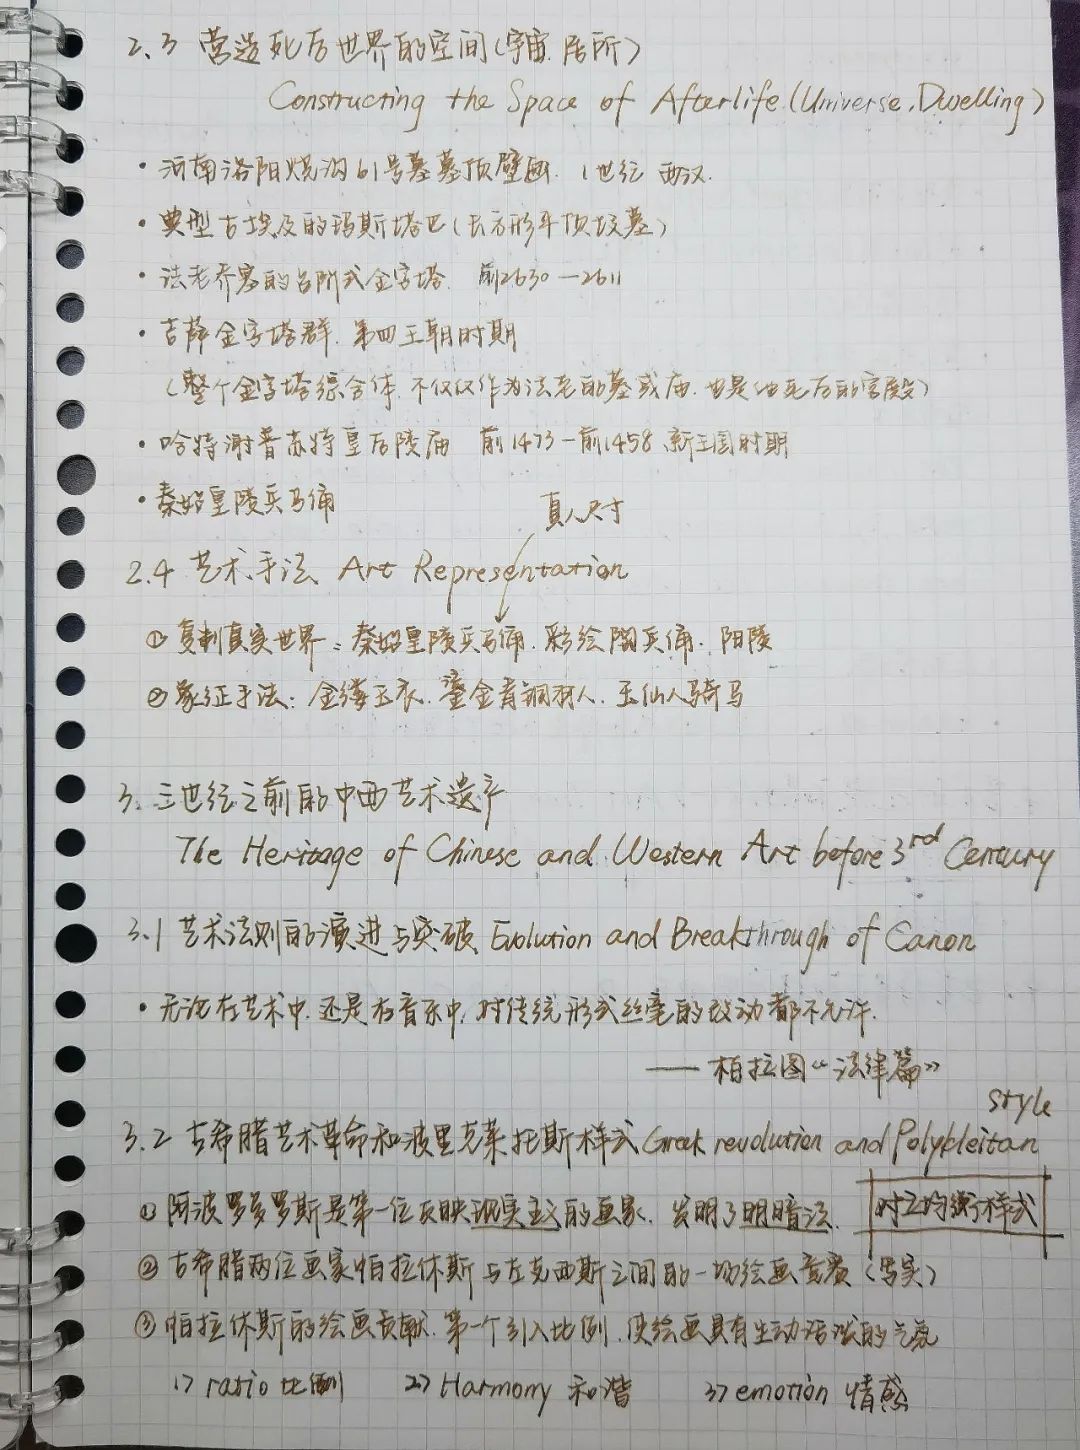 2.3 营造死后世界的空间(宇宙.居所)
Constructing the Space of Afterlife.(Universe.Dwelling)
· 河南洛阳烧沟61号墓墓顶壁画. 1世纪 两汉.
· 典型古埃及的玛斯塔巴(长方形平顶坟墓)
· 法老乔塞的台阶式金字塔. 前2630—2611
· 吉萨金字塔群. 第四王朝时期
(整个金字塔综合体.不仅仅作为法老的墓或庙.也是他死后的宫殿)
· 哈特谢普苏特皇后陵庙 前1473—前1458 新王国时期
· 秦始皇陵兵马俑
真人尺寸
2.4 艺术手法 Art Representation
① 复制真实世界: 秦始皇陵兵马俑. 彩绘陶兵俑. 阳陵
② 象征手法: 金缕玉衣. 鎏金青铜羽人. 玉仙人骑马
3. 三世纪之前的中西艺术遗产
The Heritage of Chinese and Western Art before 3rd Century
3.1 艺术法则的演进与突破 Evolution and Breakthrough of Canon
· 无论在艺术中.还是在音乐中,对传统形式丝毫的改动都不允许.
—— 柏拉图《法律篇》
style
3.2 古希腊艺术革命和波里克莱托斯样式 Greek revolution and Polykleitan
① 阿波罗多罗斯是第一位反映现实主义的画家. 发明了明暗法. 对立均衡样式
② 古希腊两位画家帕拉休斯与左克西斯之间的一场绘画竞赛(写实)
③ 帕拉休斯的绘画贡献. 第一个引入比例.使绘画具有生动活泼的气氛
1> ratio 比例 2> Harmony 和谐 3> emotion 情感